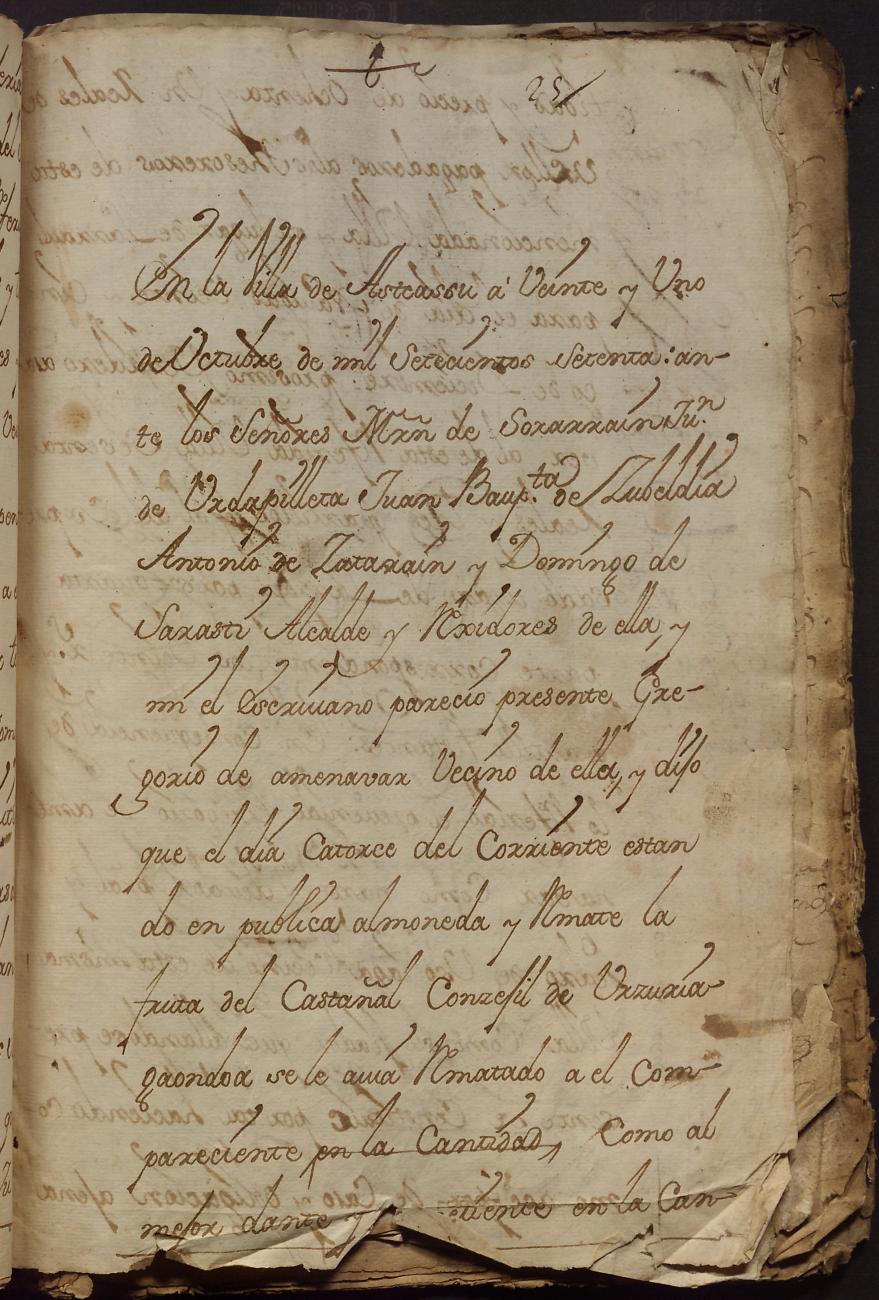 25
En la Villa de Asteassu á Veinte y Uno
de Octubre de mil Setecientos Setenta: an-
te los Señores Mrn de Sorarrain Jun
de Urdapilleta Juan Baupta de Zubeldia
Antonio de Zatarain y Domingo de
Sarasti Alcalde y Rexidores de ella, y
mi el Escrivano pareció presente Gre-
gorio de amenavar Vecino de ella, y dijo
que el dia Catorce del Corriente estan
do en publica almoneda y Rmate la
fruta del Castañal Conzejil de Urzuria-
gaondoa se le avia Rmatado a el Com-
pareciente en la Cantidad, Como al
mejor dante y en la Can-